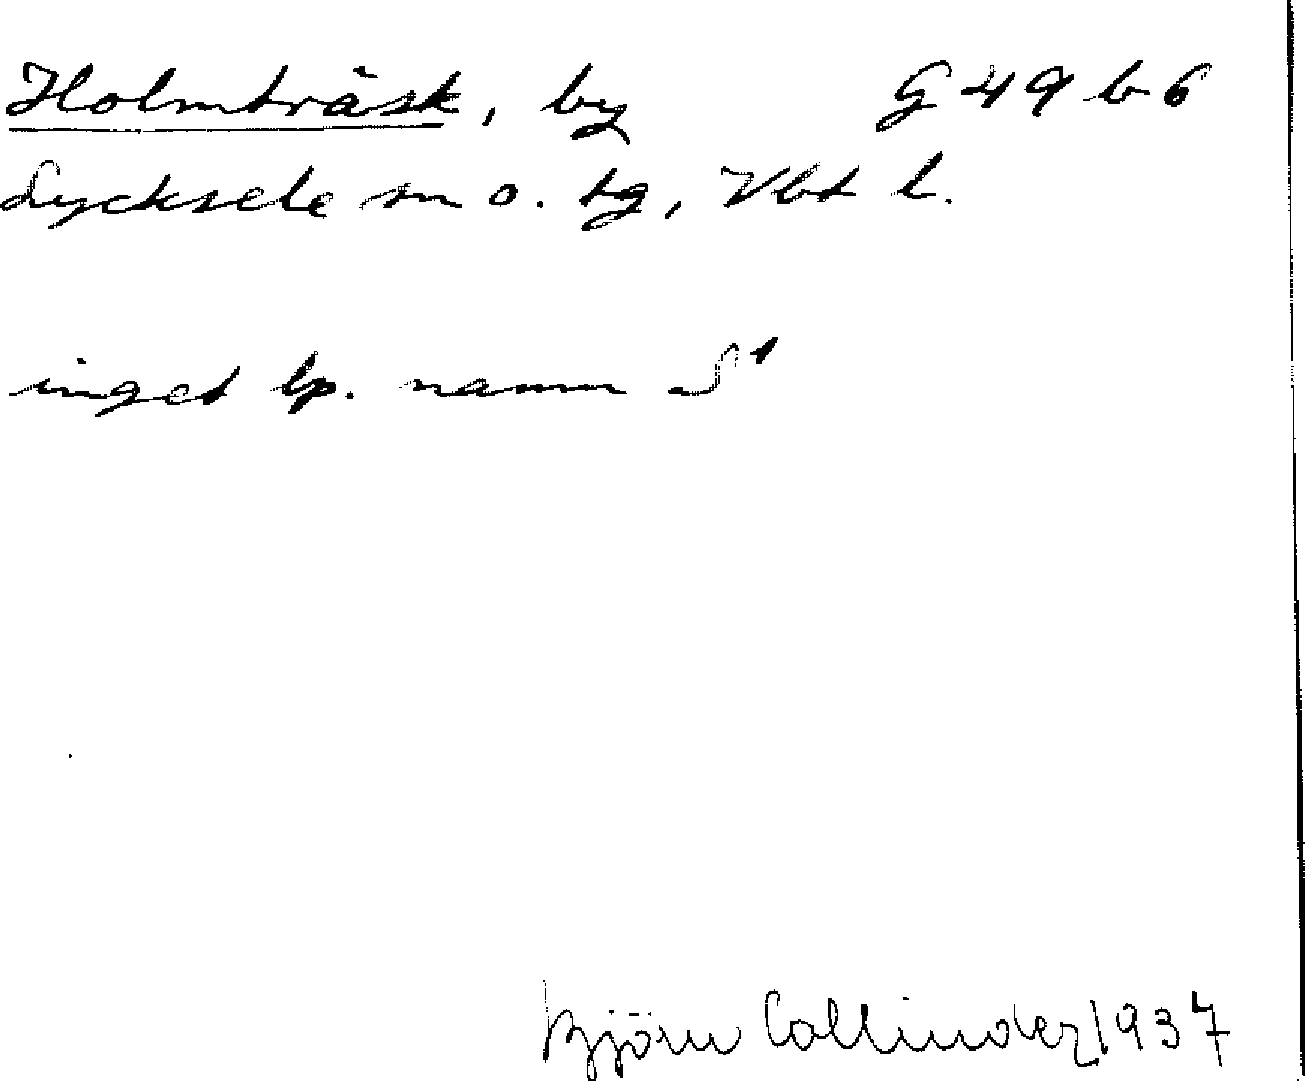 Holmträsk, by G 49 b 6
Lycksele sn o. tg, Vbt l.
inget lp. namn S¹
Björn Collinder 1937